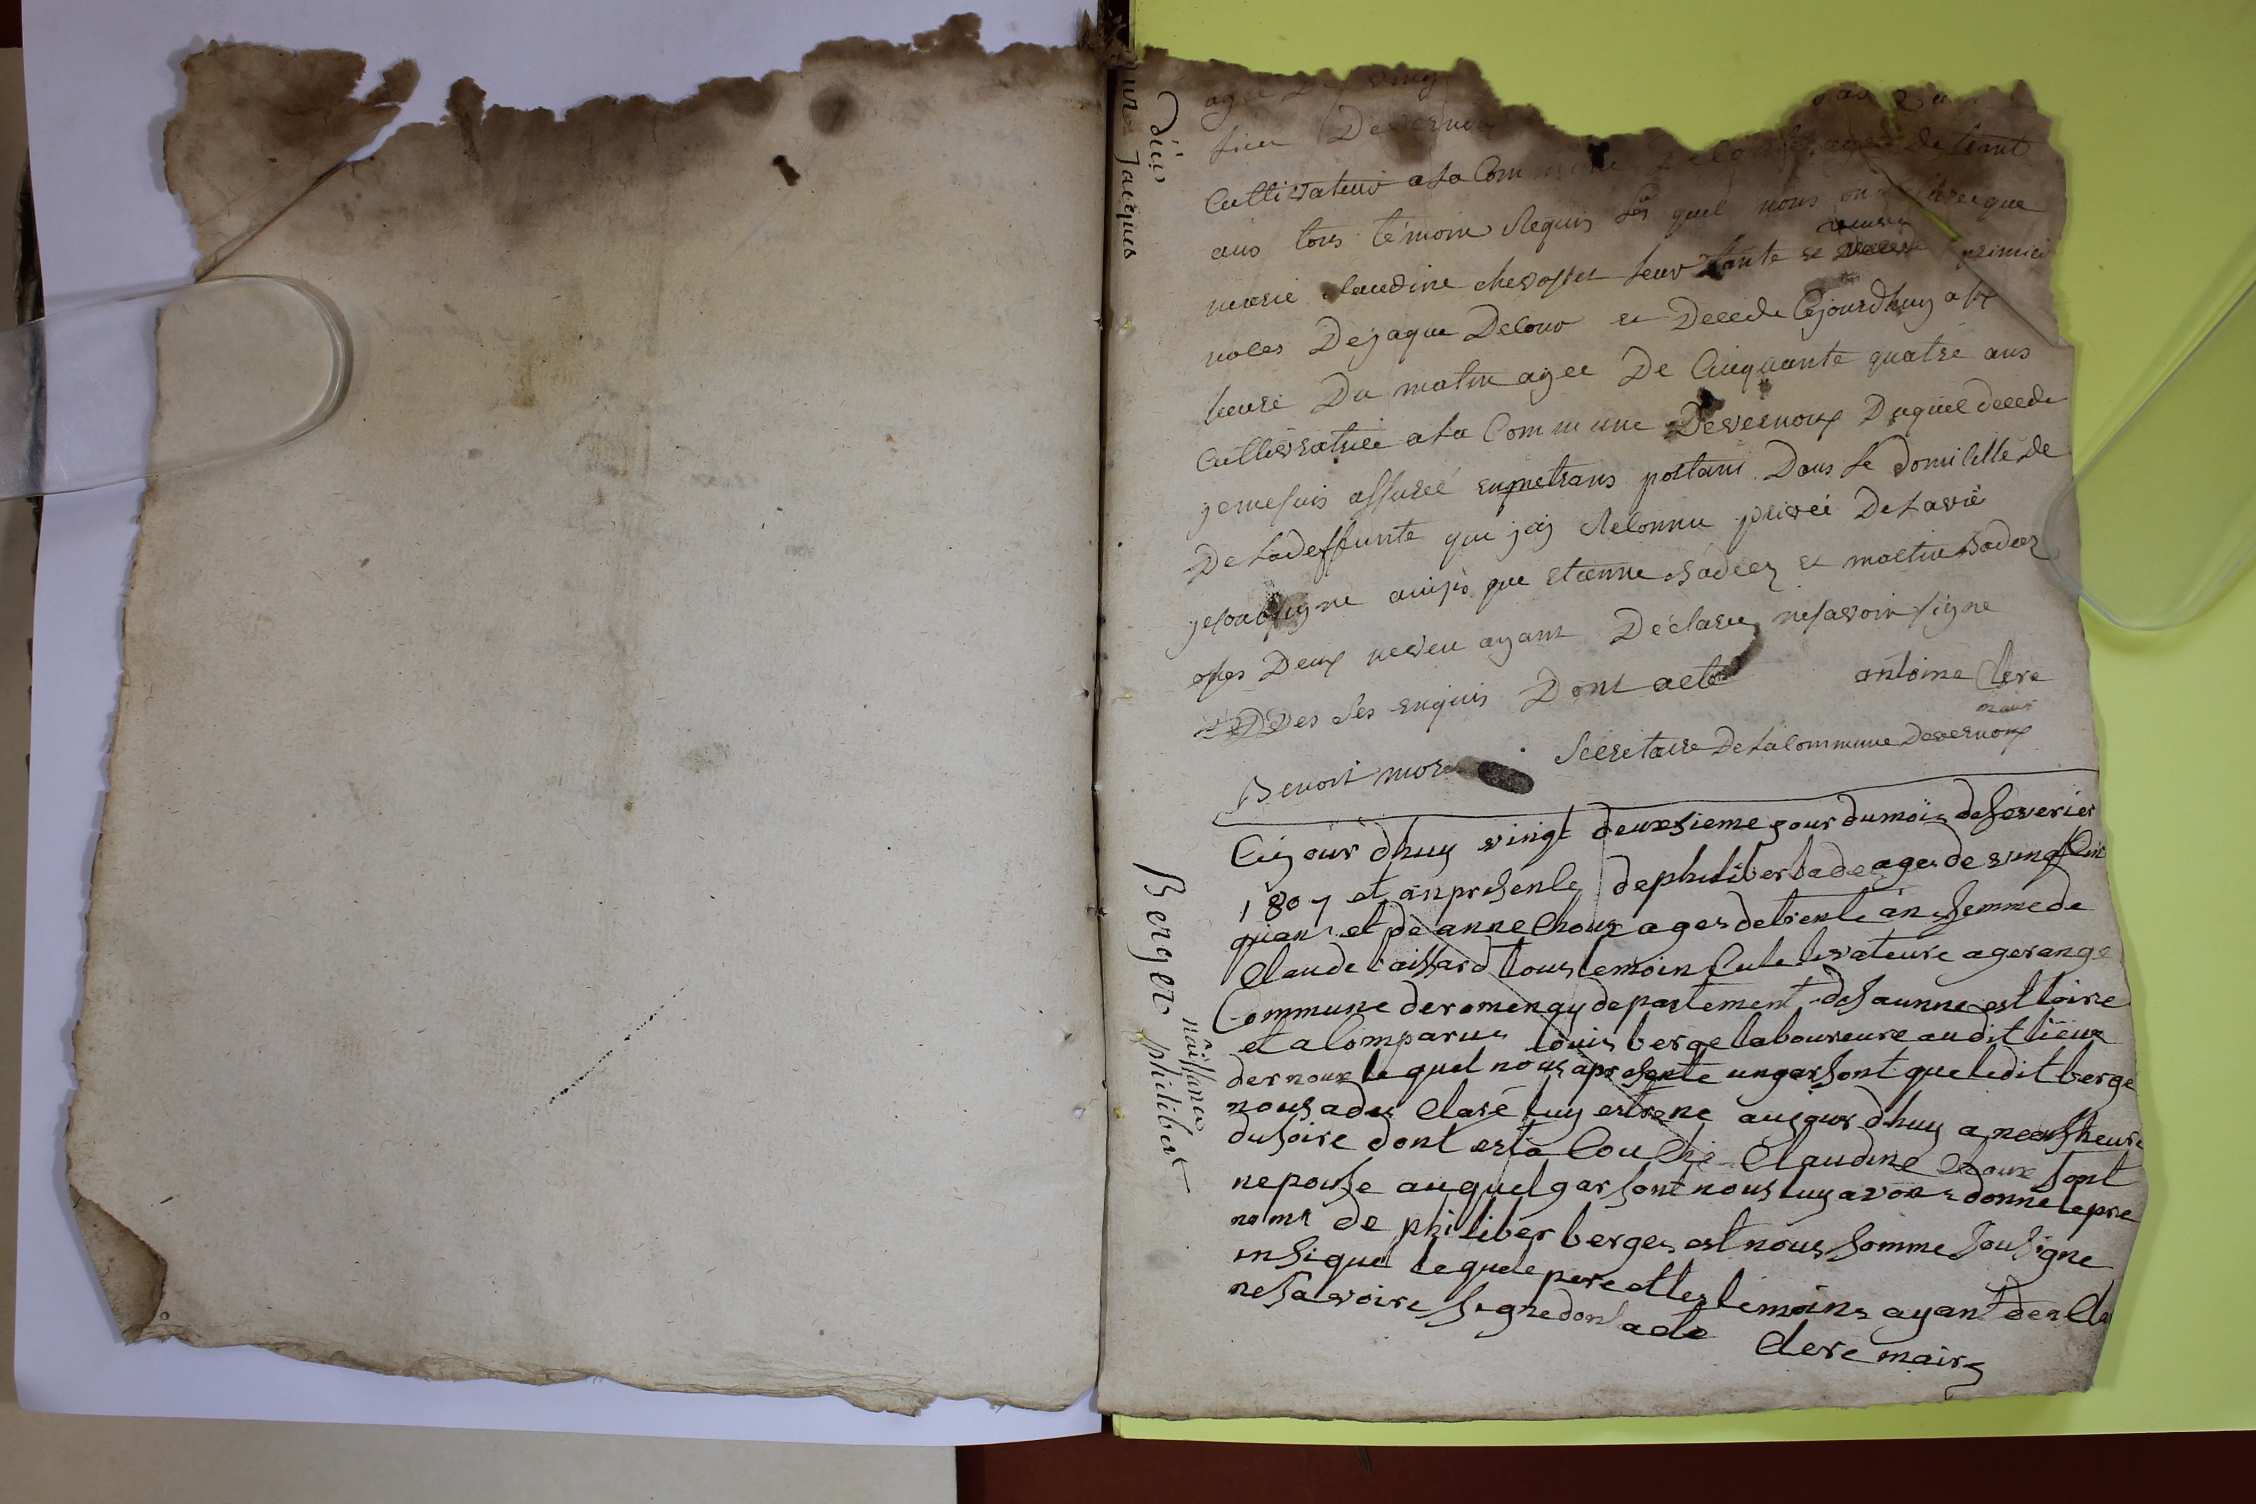 décès
Jacques
agée De ving
Cultivateur a La Commune agee de trant
ans tous témoin Requis Les quel nous on que
marie claudine chevosset leur tante premier
noces De jaque Delour et Decede Cejourdhuy a
heure Du matin agee De Cinquante quatre ans
Cultivatrice a La Commune Devernoux Duquel decede
jemesuis assuree enmetrans portant Dans Le domicille De
De Ladeffunte que jaj Reconnu privée De La vie
jesousigne ainssi que etienne badez et martin badez
ses Deux neveu ayant Déclarez nesavoir signe
Des Les enquis Dont acte
antoine Clere
maire
Benoit more Secretaire De La Commune Devernoux
Berger philibert
naissance
Cejour dhuy vingt deuxsieme jour dumois defeverier
1807 et anpresenle de philiber badez ages de vingt Cin
quans et de anne Chour ages detrente ans femme de
Claude Caissard tous temoin Culetivateure a gerange
Commune deromenay departement desaunne est loire
et a Comparus louis berge laboureure audit lieux
dernoux le quel nous apresente ungarsont que ledit berge
nous a de Claré luy estrene aujour dhuy a neuf heure
dusoire dont esta Couche Claudine Chour sont
nepouse auquel garsont nous luy avons donne le pre
noms de philiber berges est nous somme sousigne
insique lequele pere et les temoins ayant de Cla
nesavoire signe dont acte
Clere maire